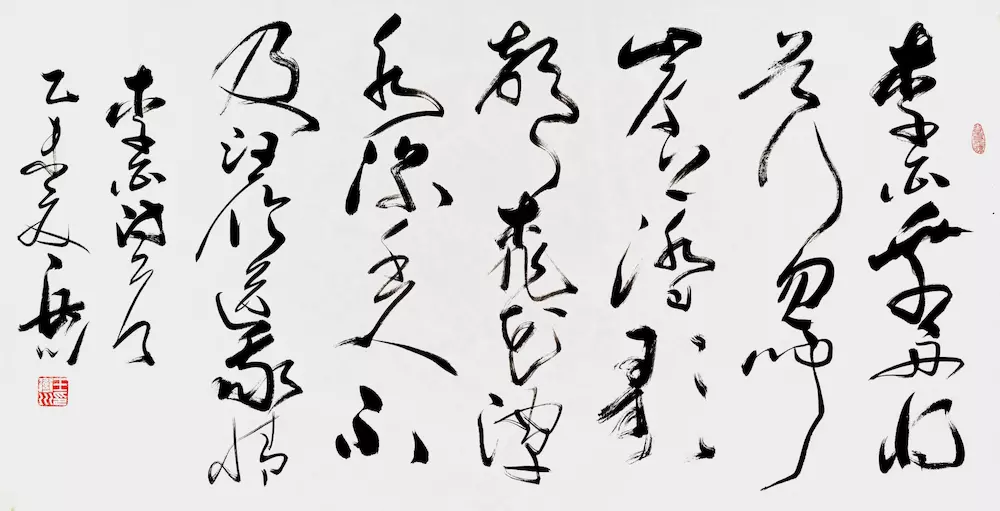 李白乘舟将
欲行忽闻
岸上踏歌
声桃花潭
水深千尺不
及汪伦送我情
李白诗一首
乙未夏